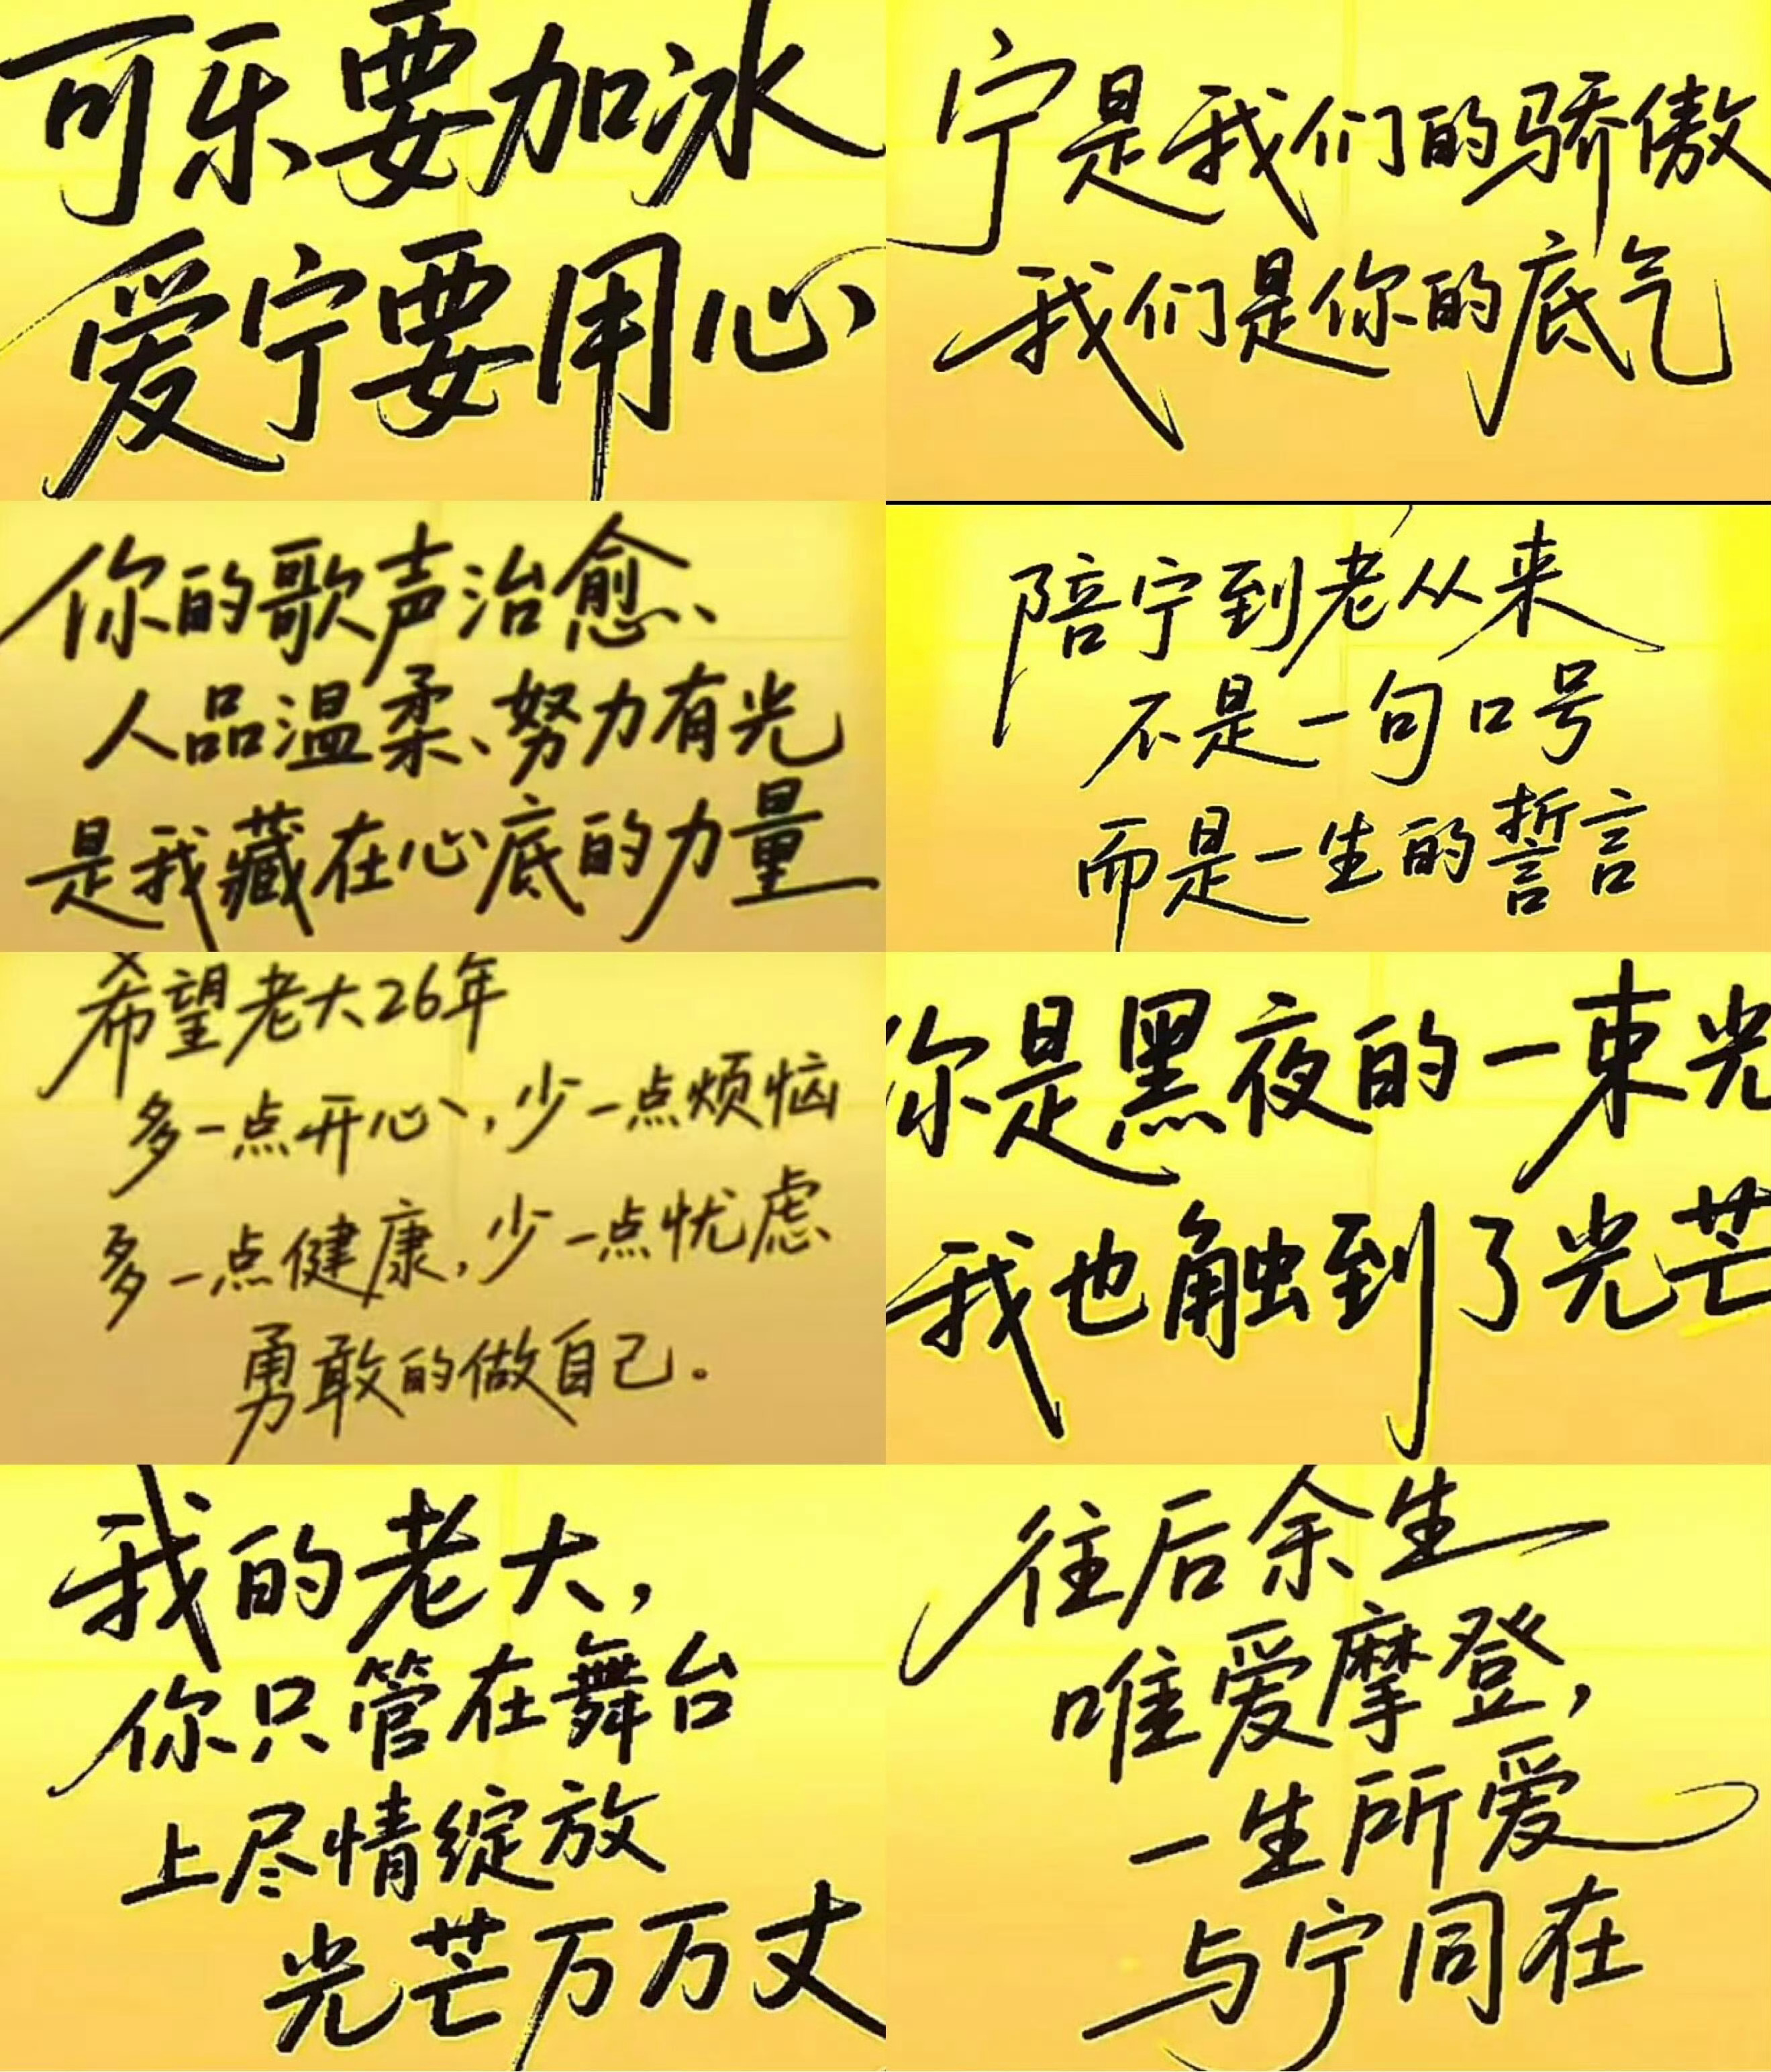 可乐要加冰
爱宁要用心
宁是我们的骄傲
我们是你的底气
你的歌声治愈、
人品温柔、努力有光
是我藏在心底的力量
陪宁到老从来
不是一句口号
而是一生的誓言
希望老大26年
多一点开心,少一点烦恼
多一点健康,少一点忧虑
勇敢的做自己.
你是黑夜的一束光
我也触到了光芒
我的老大,
你只管在舞台
上尽情绽放
光芒万万丈
往后余生
唯爱摩登,
一生所爱
与宁同在